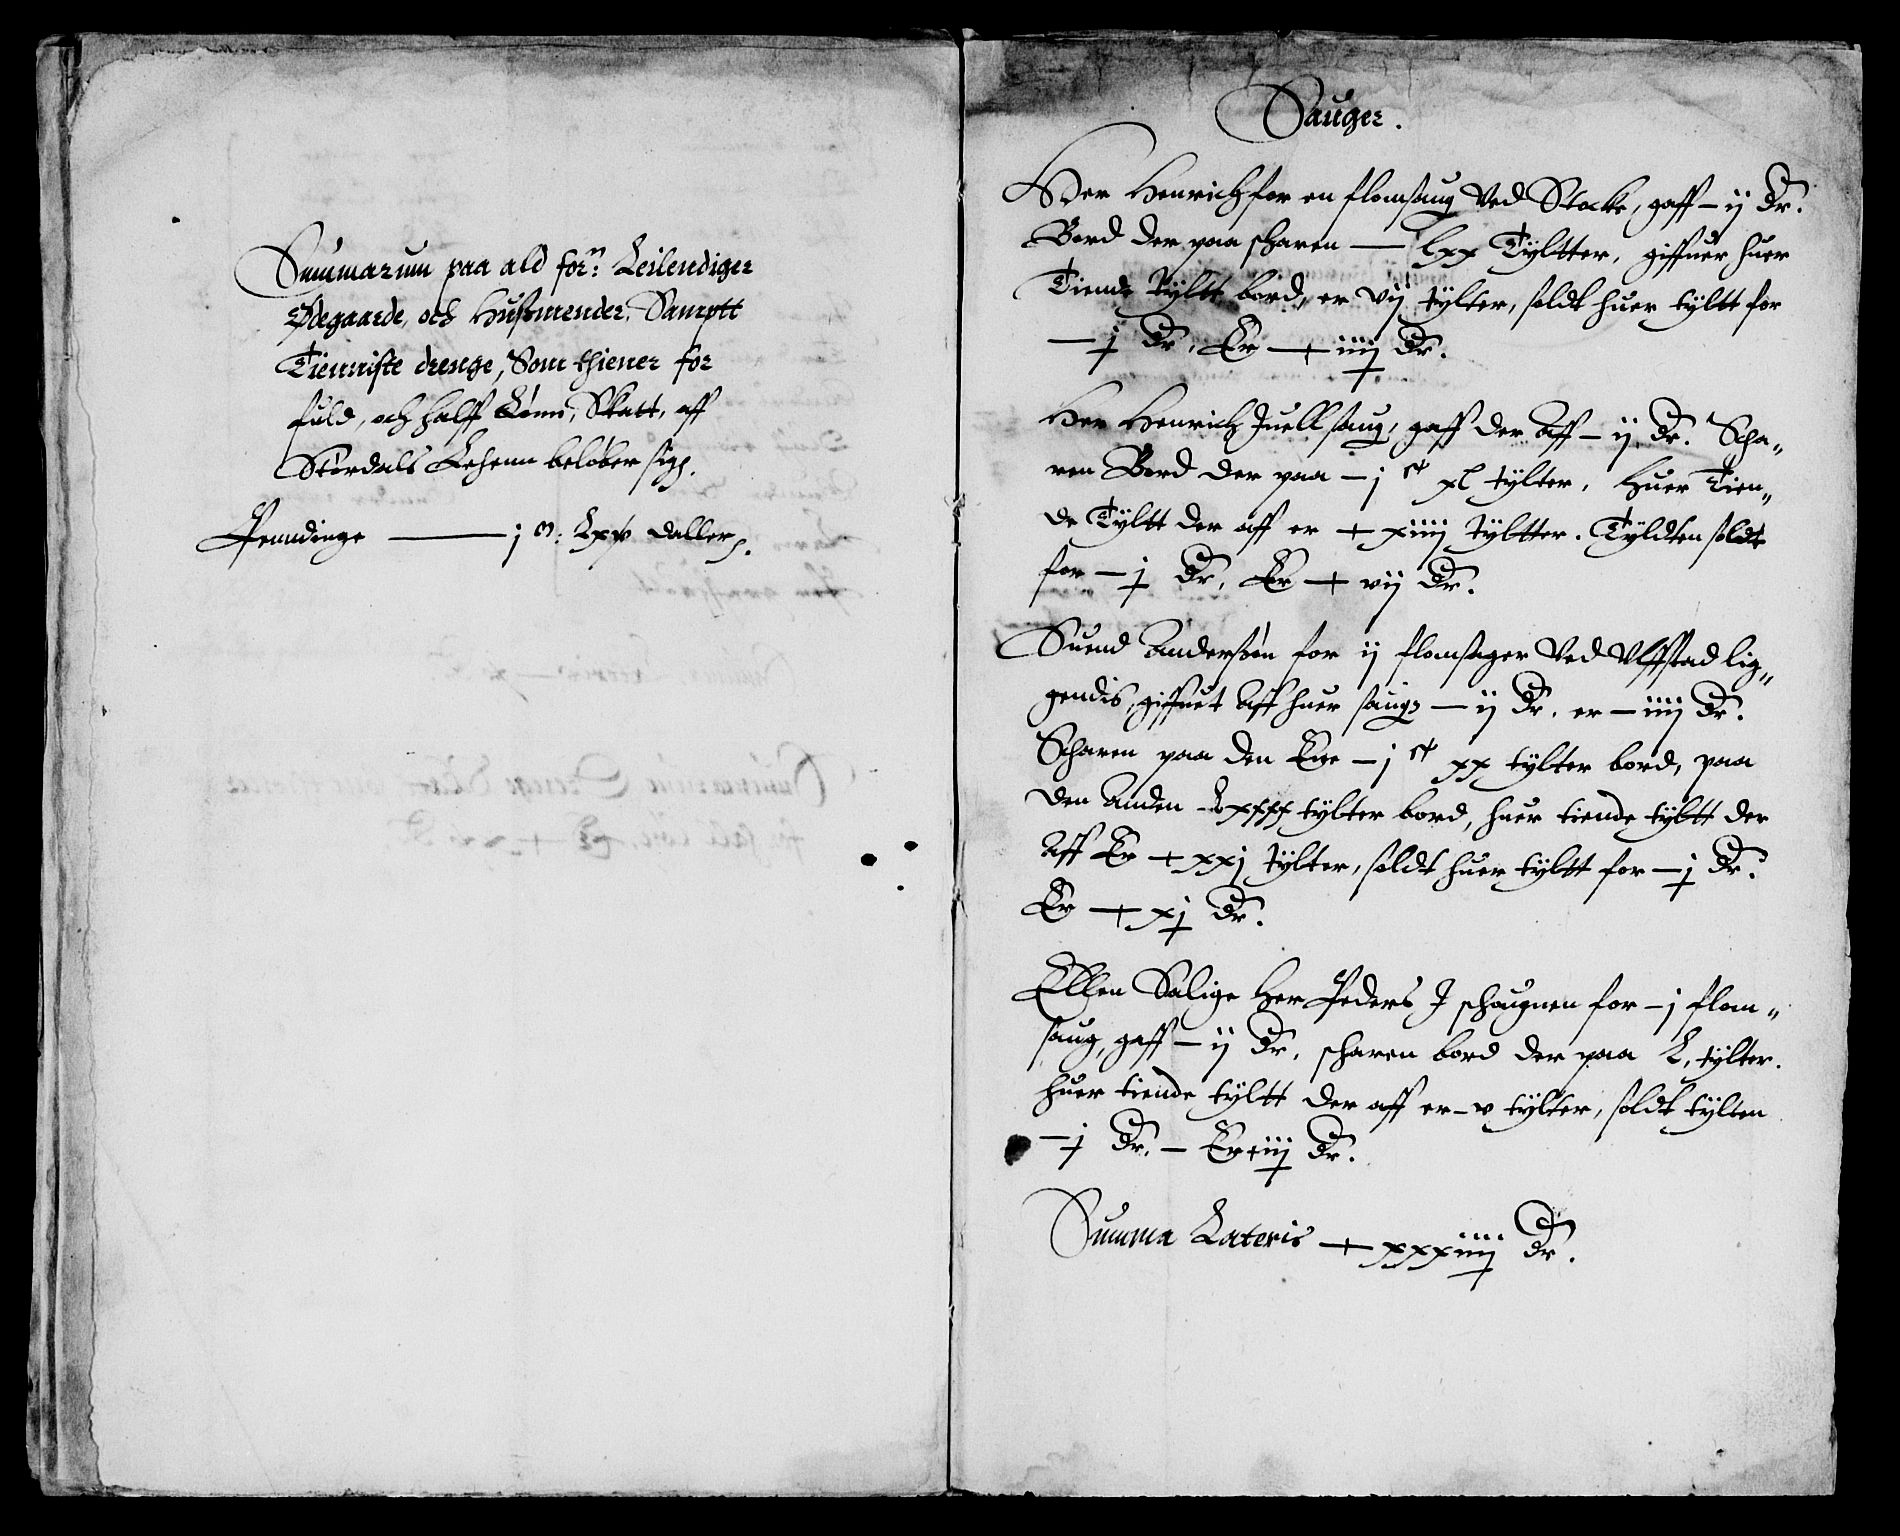 Summarum paa ald forn: Leilendiger
Ødegaarde, och Husmender, Samptt
Tienniste drenge, Som thiener for
fuld, och halff Lønn, Skatt, aff
Størdals Lehenn beløber sigh.
Penndinge — j m: Lxx daller.
Sauger.
Her Henrich for en flomsaug Ved Stocke, gaff – ij Dr.
Bord der paa scharen — lxx Tyltter, giffuer huer
Tiende tyltt bord, er vij tylter, soldt huer tyltt for
– j Dr, Er – iiij Dr.
Her Henrich Juellsaug, gaff der Aff – ij Dr. Scha„
ren Bord der paa – j c xl tylter, Huer Tien„
de Tyltt der aff er – xiiij tyltter. Tyldten soldt
for – j Dr, Er – vij Dr.
Suend Andersøn for ij flomsager Ved Vlffstad lig„
gendis, giffuet Aff huer saugh – ij Dr, er – iiij Dr.
Scharen paa den Ene – j c xx tylter bord, paa
den Anden – Lxxxx tylter bord, huer tiende tyltt der
Aff Er – xxj tylter, soldt huer tyltt for – j Dr.
Er – xj Dr.
Ellen Salige Her Peders J schougnen for – j flom„
saug, gaff – ij Dr, scharen bord der paa L, tylter.
huer tiende tyltt der aff er – v tylter, soldt tylten
– j Dr. – Er iij Dr.
Summa Lateris – xxxiiij Dr.